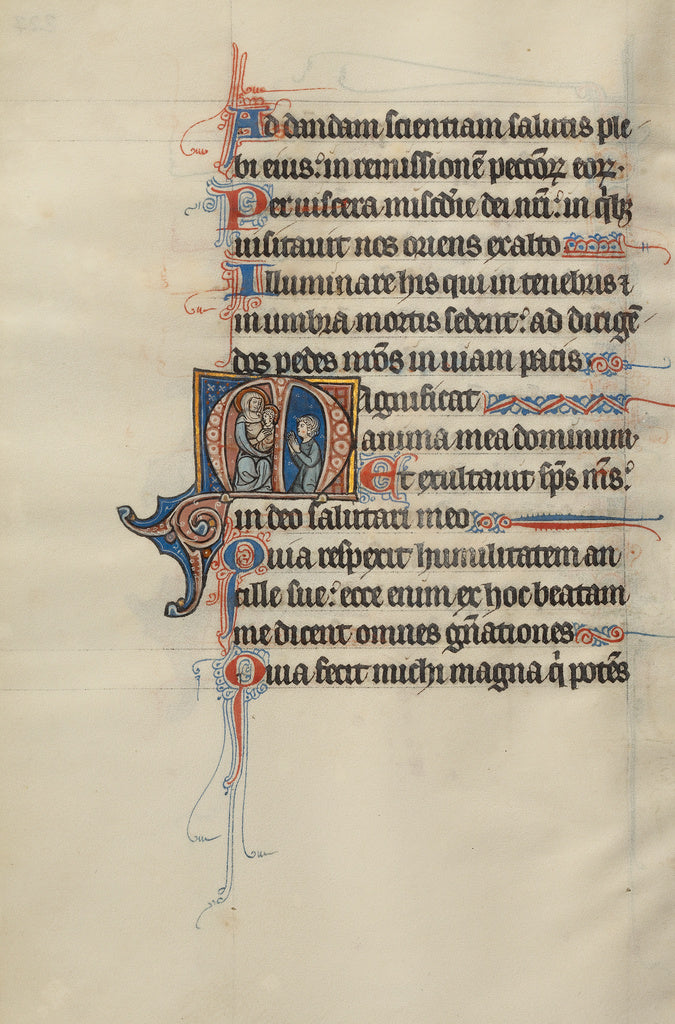 Ad dandam scientiam salutis ple
bi eius: in remissionē peccōꝝ eoꝝ.
Per uiscera miscd̄ie dei nr̄i: in qͥbꝫ
uisitauit nos oriens exalto
Illuminare his qui in tenebris ⁊
in umbra mortis sedent: ad dirigē
dos pedes nr̄os in uiam pacis
Magnificat
anima mea dominum
Et exultauit sp̄s m̄s:
in deo salutari meo
Quia respexit humilitatem an
cille sue: ecce enim ex hoc beatam
me dicent omnes gn̄ationes
Quia fecit michi magna qͥ potēs